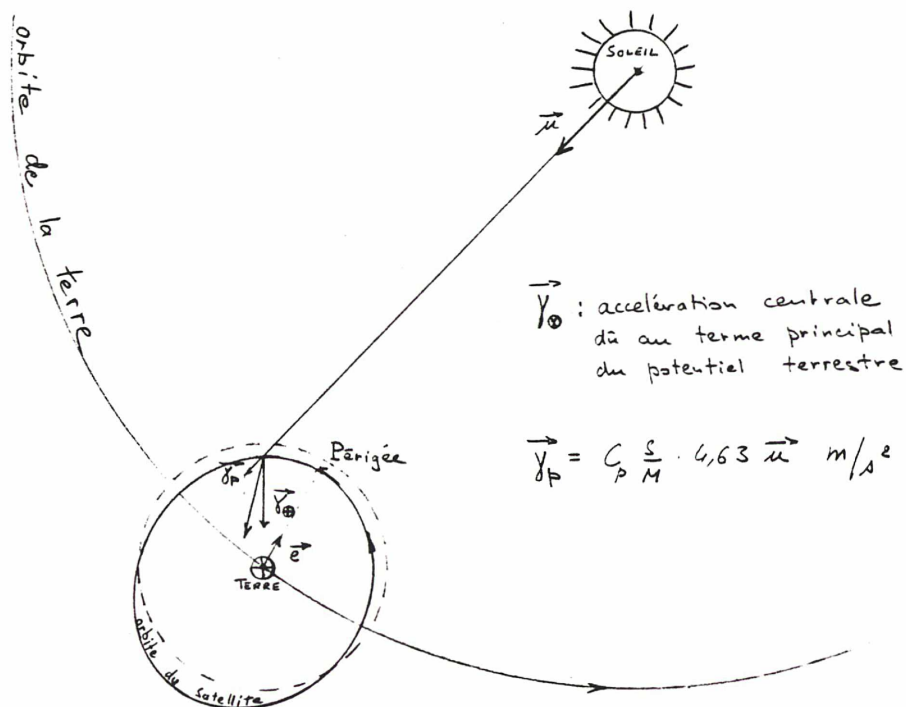 orbite de la terre
SOLEIL
μ⃗
γ⃗⊕ : accelération centrale
dû au terme principal
du potentiel terrestre
Périgée
γ⃗p
γ⃗⊕
γ⃗p = Cp S/M · 4,63 μ⃗ m/s²
e⃗
TERRE
orbite du satellite